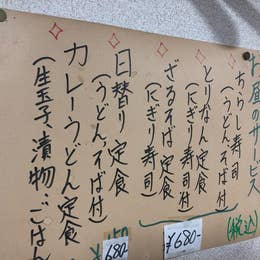 お昼のサービス
ちらし寿司
(うどん、そば付)
とりなん定食
(にぎり寿司付)
ざるそば定食
(にぎり寿司)
(税込)
¥680-
日替り定食
(うどん、そば付)
カレーうどん定食
(生玉子、漬物、ごはん
680-